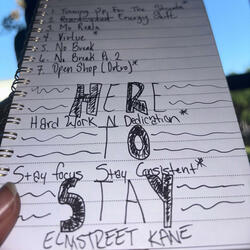 1. Tuning Up For The Streets
2. Energy Shift
3. Mo Realer
4. Virtue *
5. No Break
6. No Break Pt. 2
7. Open Shop (Outro)*
HERE
Hard Work N Dedication*
TO
Stay focus Stay Consistent*
STAY
ELMSTREET KANE